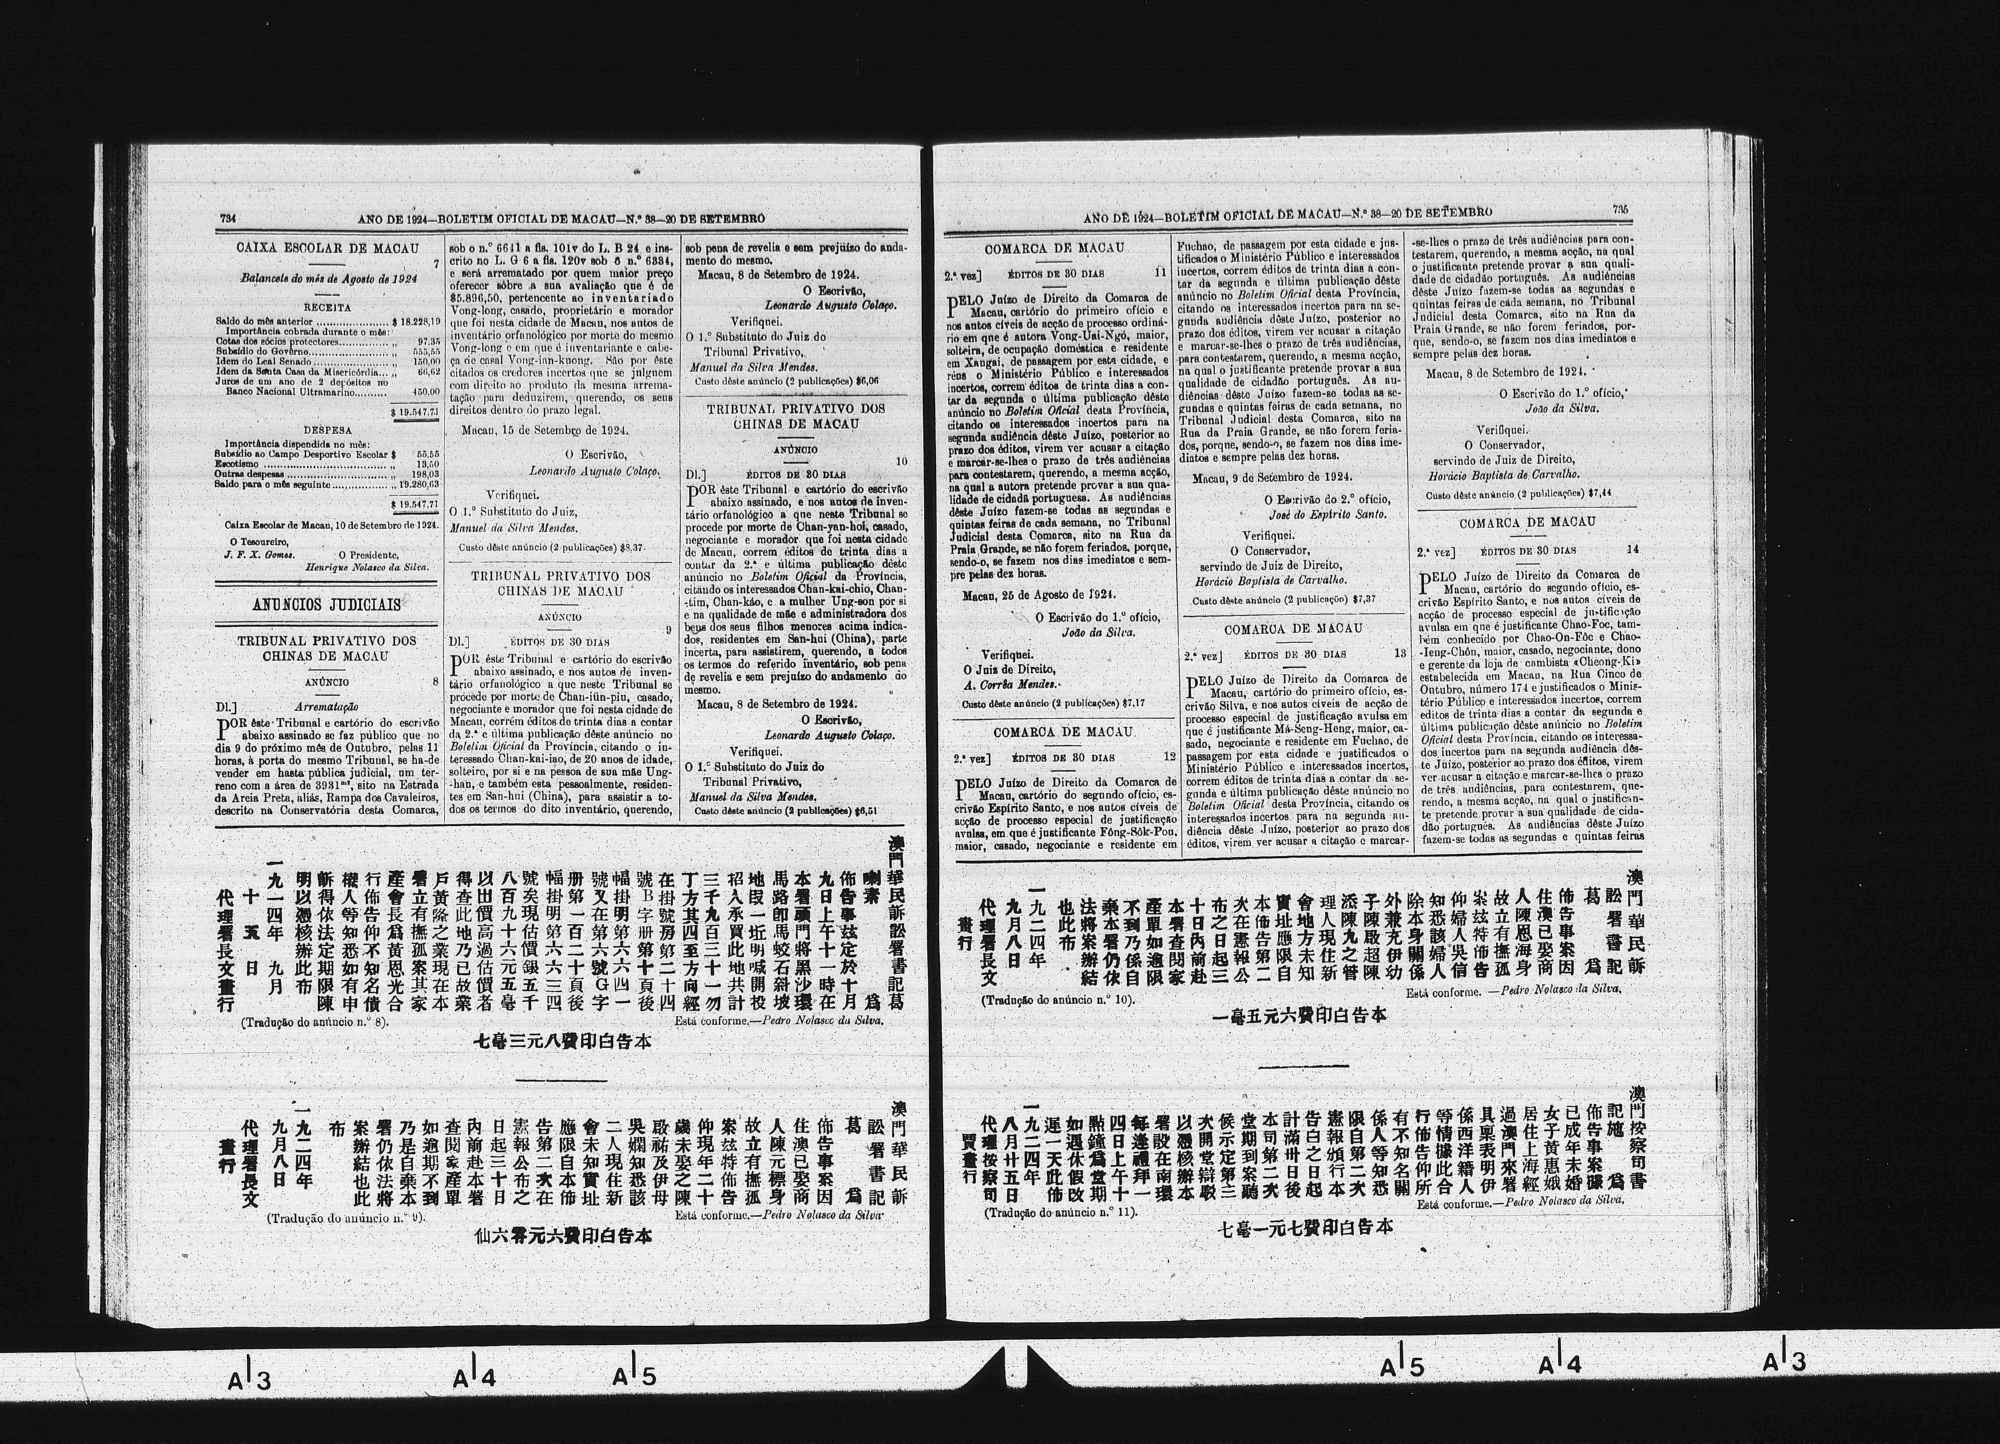 734
ANO DE 1924—BOLETIM OFICIAL DE MACAU—N.º 38—20 DE SETEMBRO
CAIXA ESCOLAR DE MACAU
7
Balancete do mês de Agosto de 1924
RECEITA
Saldo do mês anterior ..................... $ 18.228,19
Importância cobrada durante o mês:
Cotas dos sócios protectores............... „ 97,35
Subsídio do Govêrno........................ „ 555,55
Idem do Leal Senado ....................... „ 150,00
Idem da Santa Casa da Misericórdia... „ 66,62
Juros de um ano de 2 depósitos no
Banco Nacional Ultramarino.......... 450,00
$ 19.547,71
DESPESA
Importância dispendida no mês:
Subsídio ao Campo Desportivo Escolar $ 55,55
Escotismo ..................................... „ 13,50
Outras despesas ................................ „ 198,03
Saldo para o mês seguinte ................ „ 19.280,63
$ 19.547,71
Caixa Escolar de Macau, 10 de Setembro de 1924.
O Tesoureiro,
J. F. X. Gomes.
O Presidente,
Henrique Nolasco da Silva.
ANÚNCIOS JUDICIAIS
TRIBUNAL PRIVATIVO DOS
CHINAS DE MACAU
ANÚNCIO 8
Dl.] Arrematação
POR êste Tribunal e cartório do escrivão
abaixo assinado se faz público que no
dia 9 do próximo mês de Outubro, pelas 11
horas, à porta do mesmo Tribunal, se ha-de
vender em hasta pública judicial, um ter-
reno com a área de 3931m², sito na Estrada
da Areia Preta, aliás, Rampa dos Cavaleiros,
descrito na Conservatória desta Comarca,
sob o n.º 6641 a fls. 101v do L. B 24 e ins-
crito no L. G 6 a fls. 120v sob o n.º 6334,
e será arrematado por quem maior preço
oferecer sôbre a sua avaliação que é de
$5.896,50, pertencente ao inventariado
Vong-long, casado, proprietário e morador
que foi nesta cidade de Macau, nos autos de
inventário orfanológico por morte do mesmo
Vong-long e em que é inventariante e cabe-
ça de casal Vong-ian-kuong. São por êste
citados os credores incertos que se julguem
com direito ao produto da mesma arrema-
tação para deduzirem, querendo, os seus
direitos dentro do prazo legal.
Macau, 15 de Setembro de 1924.
O Escrivão,
Leonardo Augusto Colaço.
Verifiquei.
O 1.º Substituto do Juiz,
Manuel da Silva Mendes.
Custo dêste anúncio (2 publicações) $8,37
TRIBUNAL PRIVATIVO DOS
CHINAS DE MACAU
ANÚNCIO
9
Dl.] ÉDITOS DE 30 DIAS
POR êste Tribunal e cartório do escrivão
abaixo assinado, e nos autos de inven-
tário orfanológico a que neste Tribunal se
procede por morte de Chan-iün-piu, casado,
negociante e morador que foi nesta cidade de
Macau, correm éditos de trinta dias a contar
da 2.ª e última publicação dêste anúncio no
Boletim Oficial da Província, citando o in-
teressado Chan-kai-iao, de 20 anos de idade,
solteiro, por si e na pessoa de sua mãe Ung-
-han, e também esta pessoalmente, residen-
tes em San-hui (China), para assistir a to-
dos os termos do dito inventário, querendo,
sob pena de revelia e sem prejuízo do anda-
mento do mesmo.
Macau, 8 de Setembro de 1924.
O Escrivão,
Leonardo Augusto Colaço.
Verifiquei.
O 1.º Substituto do Juiz do
Tribunal Privativo,
Manuel da Silva Mendes.
Custo dêste anúncio (2 publicações) $6,06
TRIBUNAL PRIVATIVO DOS
CHINAS DE MACAU
ANÚNCIO
10
Dl.] ÉDITOS DE 30 DIAS
POR êste Tribunal e cartório do escrivão
abaixo assinado, e nos autos de inven-
tário orfanológico a que neste Tribunal se
procede por morte de Chan-yan-hoi, casado,
negociante e morador que foi nesta cidade
de Macau, correm éditos de trinta dias a
contar da 2.ª e última publicação dêste
anúncio no Boletim Oficial da Província,
citando os interessados Chan-kai-chio, Chan-
-tim, Chan-káo, e a mulher Ung-son por si
e na qualidade de mãe e administradora dos
bens dos seus filhos menores acima indica-
dos, residentes em San-hui (China), parte
incerta, para assistirem, querendo, a todos
os termos do referido inventário, sob pena
de revelia e sem prejuízo do andamento do
mesmo.
Macau, 8 de Setembro de 1924.
O Escrivão,
Leonardo Augusto Colaço.
Verifiquei.
O 1.º Substituto do Juiz do
Tribunal Privativo,
Manuel da Silva Mendes.
Custo dêste anúncio (2 publicações) $6,51
澳門華民訴訟署書記葛
喇素 為
佈告事茲定於十月
九日上午十一時在
本署頭門將黑沙環
馬路即馬蛟石斜坡
地段一坵明喊開投
招人承買此地共計
三千九百三十一勿
丁方其四至方向經
在掛號房第二十四
號B字册第十頁後
幅掛明第六六四一
號又在第六號G字
册第一百二十頁後
幅掛明第六六三四
號矣現估價銀五千
八百九十六元五毫
以出價高過估價者
得查此地乃已故業
戶黃隆之業現在本
署立有撫孤案其家
產會長為黃恩光合
行佈告仰不知名債
權人等知悉如有申
訴得依法定期限陳
明以憑核辦此布
一九一四年 九月
十五日
代理署長文畫行
(Tradução do anúncio n.º 8).
Está conforme.—Pedro Nolasco da Silva.
七毫三元八費印白告本
澳門華民訴
訟署書記
葛 為
佈告事案因
住澳已娶商
人陳元標身
故立有撫孤
案茲特佈告
仰現年二十
歲未娶之陳
啟祐及伊母
吳嫻知悉該
二人現住新
會未知實址
應限自本佈
告第二次在
憲報公布之
日起三十日
內前赴本署
查閱家產單
如逾期不到
乃是自棄本
署仍依法將
案辦結也此
布
一九二四年
九月八日
代理署長文
畫行
(Tradução do anúncio n.º 9).
Está conforme.—Pedro Nolasco da Silva
仙六零元六費印白告本
ANO DE 1924—BOLETIM OFICIAL DE MACAU—N.º 38—20 DE SETEMBRO
735
COMARCA DE MACAU
2.ª vez] ÉDITOS DE 30 DIAS 11
PELO Juízo de Direito da Comarca de
Macau, cartório do primeiro ofício e
nos autos cíveis de acção de processo ordiná-
rio em que é autora Vong-Uai-Ngó, maior,
solteira, de ocupação doméstica e residente
em Xangai, de passagem por esta cidade, e
réus o Ministério Público e interessados
incertos, correm éditos de trinta dias a con-
tar da segunda e última publicação dêste
anúncio no Boletim Oficial desta Província,
citando os interessados incertos para na
segunda audiência dêste Juízo, posterior ao
prazo dos éditos, virem ver acusar a citação
e marcar-se-lhes o prazo de três audiências
para contestarem, querendo, a mesma acção,
na qual a autora pretende provar a sua qua-
lidade de cidadã portuguesa. As audiências
dêste Juízo fazem-se todas as segundas e
quintas feiras de cada semana, no Tribunal
Judicial desta Comarca, sito na Rua da
Praia Grande, se não forem feriados, porque,
sendo-o, se fazem nos dias imediatos e sem-
pre pelas dez horas.
Macau, 25 de Agosto de 1924.
O Escrivão do 1.º ofício,
João da Silva.
Verifiquei.
O Juiz de Direito,
A. Corrêa Mendes.
Custo dêste anúncio (2 publicações) $7,17
COMARCA DE MACAU
2.ª vez] ÉDITOS DE 30 DIAS 12
PELO Juízo de Direito da Comarca de
Macau, cartório do segundo ofício, es-
crivão Espírito Santo, e nos autos cíveis de
acção de processo especial de justificação
avulsa, em que é justificante Fông-Sôk-Pou,
maior, casado, negociante e residente em
Fuchao, de passagem por esta cidade e jus-
tificados o Ministério Público e interessados
incertos, correm éditos de trinta dias a con-
tar da segunda e última publicação dêste
anúncio no Boletim Oficial desta Província,
citando os interessados incertos para na se-
gunda audiência dêste Juízo, posterior ao
prazo dos éditos, virem ver acusar a citação
e marcar-se-lhes o prazo de três audiências,
para contestarem, querendo, a mesma acção,
na qual o justificante pretende provar a sua
qualidade de cidadão português. As au-
diências dêste Juízo fazem-se todas as se-
gundas e quintas feiras de cada semana, no
Tribunal Judicial desta Comarca, sito na
Rua da Praia Grande, se não forem feria-
dos, porque, sendo-o, se fazem nos dias ime-
diatos e sempre pelas dez horas.
Macau, 9 de Setembro de 1924.
O Escrivão do 2.º ofício,
José do Espírito Santo.
Verifiquei.
O Conservador,
servindo de Juiz de Direito,
Horácio Baptista de Carvalho.
Custo dêste anúncio (2 publicação) $7,37
COMARCA DE MACAU
2.ª vez] ÉDITOS DE 30 DIAS 13
PELO Juízo de Direito da Comarca de
Macau, cartório do primeiro ofício, es-
crivão Silva, e nos autos cíveis de acção de
processo especial de justificação avulsa em
que é justificante Má-Seng-Heng, maior, ca-
sado, negociante e residente em Fuchao, de
passagem por esta cidade e justificados o
Ministério Público e interessados incertos,
correm éditos de trinta dias a contar da se-
gunda e última publicação dêste anúncio no
Boletim Oficial desta Província, citando os
interessados incertos para na segunda au-
diência dêste Juízo, posterior ao prazo dos
éditos, virem ver acusar a citação e marcar-
-se-lhes o prazo de três audiências para con-
testarem, querendo, a mesma acção, na qual
o justificante pretende provar a sua quali-
dade de cidadão português. As audiências
dêste Juízo fazem-se todas as segundas e
quintas feiras de cada semana, no Tribunal
Judicial desta Comarca, sito na Rua da
Praia Grande, se não forem feriados, por-
que, sendo-o, se fazem nos dias imediatos e
sempre pelas dez horas.
Macau, 8 de Setembro de 1924.
O Escrivão do 1.º ofício,
João da Silva.
Verifiquei.
O Conservador,
servindo de Juiz de Direito,
Horácio Baptista de Carvalho.
Custo dêste anúncio (2 publicações) $7,44
COMARCA DE MACAU
2.ª vez] ÉDITOS DE 30 DIAS 14
PELO Juízo de Direito da Comarca de
Macau, cartório do segundo ofício, es-
crivão Espírito Santo, e nos autos cíveis de
acção de processo especial de justificação
avulsa em que é justificante Chao-Foc, tam-
bém conhecido por Chao-On-Fôc e Chao-
-Ieng-Chôn, maior, casado, negociante, dono
e gerente da loja de cambista «Cheong-Ki»
estabelecida em Macau, na Rua Cinco de
Outubro, número 174 e justificados o Minis-
tério Público e interessados incertos, correm
editos de trinta dias a contar da segunda e
última publicação dêste anúncio no Boletim
Oficial desta Província, citando os interessa-
dos incertos para na segunda audiência dês-
te Juízo, posterior ao prazo dos éditos, virem
ver acusar a citação e marcar-se-lhes o prazo
de três audiências, para contestarem, que-
rendo, a mesma acção, na qual o justifican-
te pretende provar a sua qualidade de cida-
dão português. As audiências dêste Juízo
fazem-se todas as segundas e quintas feiras
澳門華民訴
訟署書記
葛 為
佈告事案因
住澳已娶商
人陳恩海身
故立有撫孤
案茲特佈告
仰婦人吳信
知悉該婦人
除本身關係
外兼充伊幼
子陳啟超陳
添陳九之管
理人現住新
會地方未知
實址應限自
本佈告第二
次在憲報公
布之日起三
十日內前赴
本署查閱家
產單如逾限
不到乃係自
棄本署仍依
法將案辦結
也此布
一九二四年
九月八日
代理署長文
畫行
(Tradução do anúncio n.º 10).
Está conforme. —Pedro Nolasco da Silva.
一毫五元六費印白告本
澳門按察司書
記施 為
佈告事案據
已成年未婚
女子黃惠娥
居住上海經
過澳門來署
具稟表明伊
係西洋籍人
等情據此合
行佈告仰所
有不知名關
係人等知悉
限自第二次
憲報頒行本
告白之日起
計滿卅日後
本司第二次
堂期到案聽
候示定第三
次開堂辯駁
以憑核辦本
署設在南環
每逢禮拜一
四日上午十
點鐘為堂期
如遇休假改
遲一天此佈
一九二四年
八月廿五日
代理按察司
賈畫行
(Tradução do anúncio n.º 11).
Está conforme.—Pedro Nolasco da Silva.
七毫一元七費印白告本
A3 A4 A5 A5 A4 A3